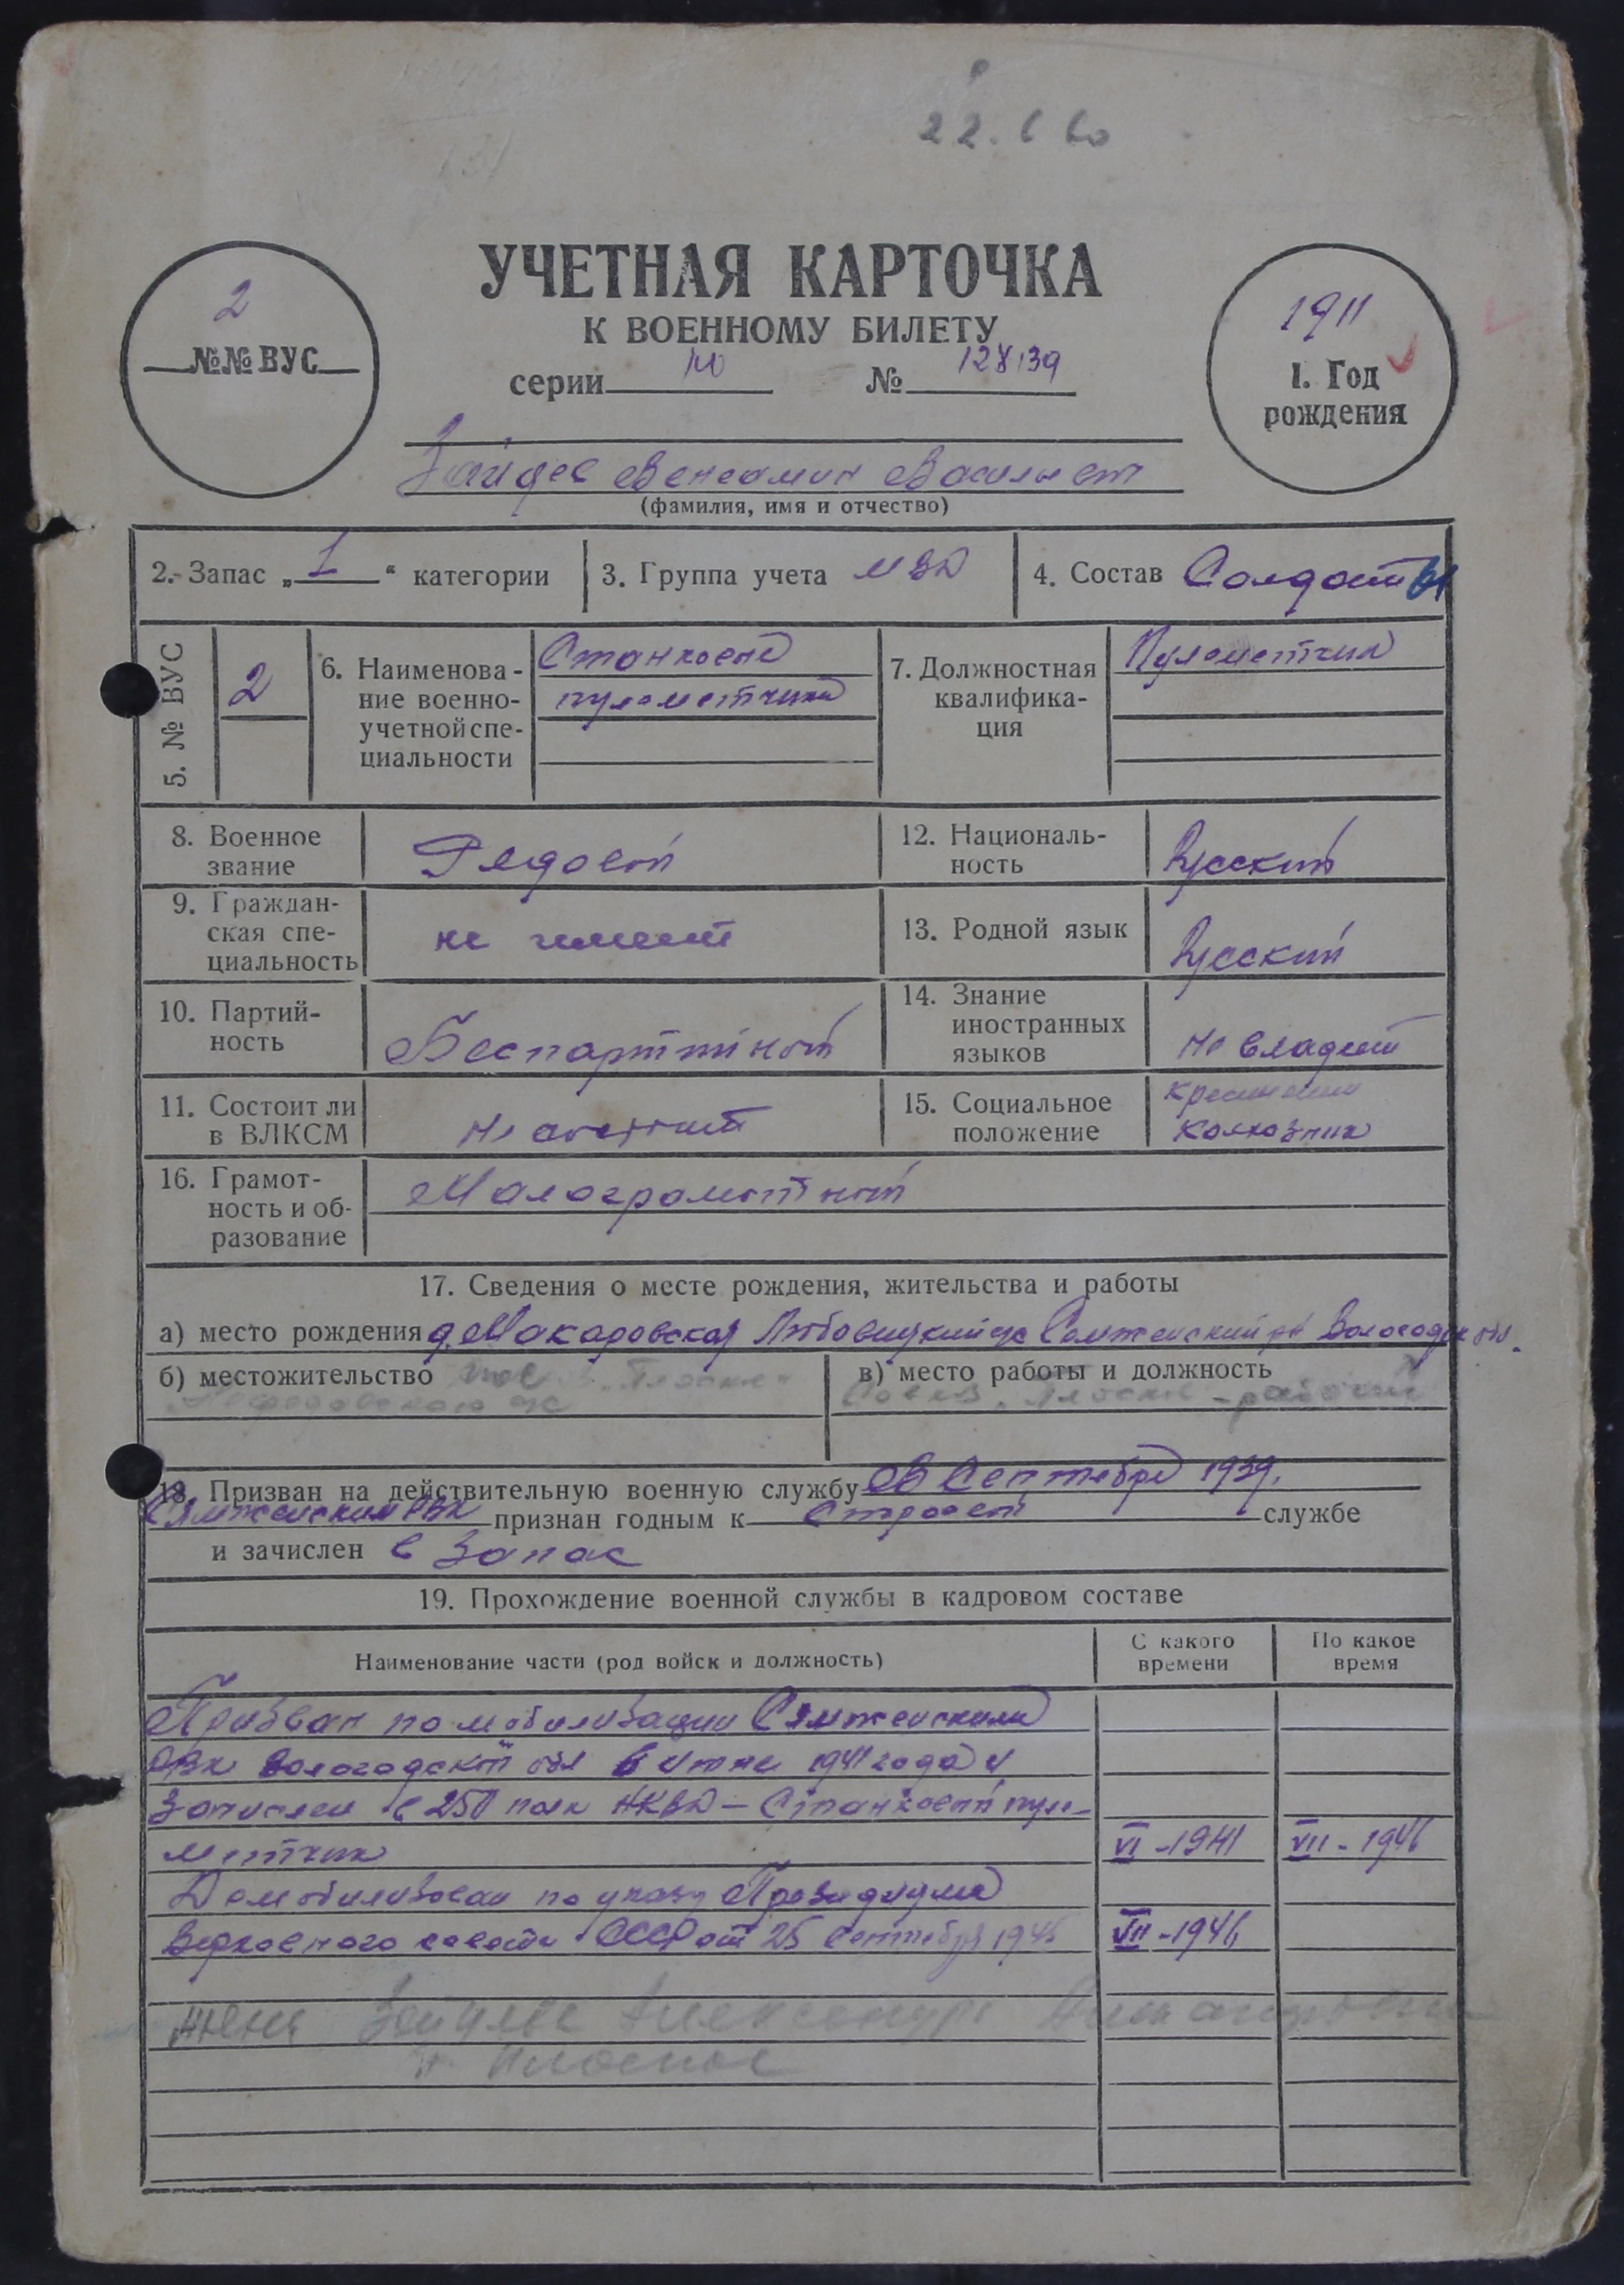 22.
УЧЕТНАЯ КАРТОЧКА
К ВОЕННОМУ БИЛЕТУ
серии № 128139
2
№№ ВУС
1911
1. Год
рождения
Зайцев Вениамин Васильев
(фамилия, имя и отчество)
2. Запас „1“ категории 3. Группа учета МВД 4. Состав Солдаты
5. № ВУС 2
6. Наименова-
ние военно-
учетной спе-
циальности
Станковые
пулеметчики
7. Должностная
квалифика-
ция
Пулеметчик
8. Военное
звание
Рядовой
12. Националь-
ность
Русский
9. Граждан-
ская спе-
циальность
не имеет
13. Родной язык Русский
10. Партий-
ность
Беспартийной
14. Знание
иностранных
языков
не владеет
11. Состоит ли
в ВЛКСМ
не состоит
15. Социальное
положение
крестьянин
колхозник
16. Грамот-
ность и об-
разование
Малограмотной
17. Сведения о месте рождения, жительства и работы
а) место рождения д. Макаровская с/с Сямженский рн Вологодск обл.
б) местожительство „Плоское“
в) место работы и должность
Совхоз Плоское - рабочий
18. Призван на действительную военную службу Сентябре 1939.
Сямженским РВК признан годным к строевой службе
и зачислен в запас
19. Прохождение военной службы в кадровом составе
Наименование части (род войск и должность)
С какого
времени
По какое
время
Призван по мобилизации Сямженским
РВК Вологодской обл в июне 1941 года и
зачислен в полк НКВД – Станковый пуле-
метчик VI - 1941 VII - 1946
Демобилизован по указу Президиума
Верховного совета СССР от 25 Сентября 1945 VII - 1946
жена Зайцева Александра
п. Плоское